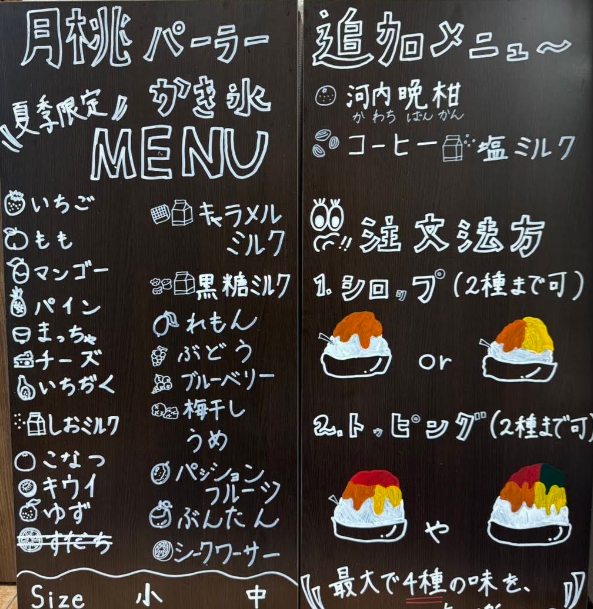 月桃パーラー
夏季限定
かき氷
MENU
いちご
もも
マンゴー
パイン
まっちゃ
チーズ
いちぢく
しおミルク
こなつ
キウイ
ゆず
すだち
キャラメル
ミルク
黒糖ミルク
れもん
ぶどう
ブルーベリー
梅干し
うめ
パッション
フルーツ
ぶんたん
シークワーサー
Size 小 中
追加メニュー
河内晩柑
かわち ばんかん
コーヒー 塩ミルク
!! 注文法方
1. シロップ (2種まで可)
or
2. トッピング (2種まで可)
や
最大で4種の味を、